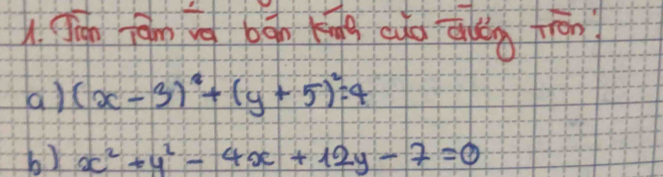 1. Tìm tâm và bán kính của đường tròn:
a) (x - 3)² + (y + 5)² = 4
b) x² + y² - 4x + 12y - 7 = 0